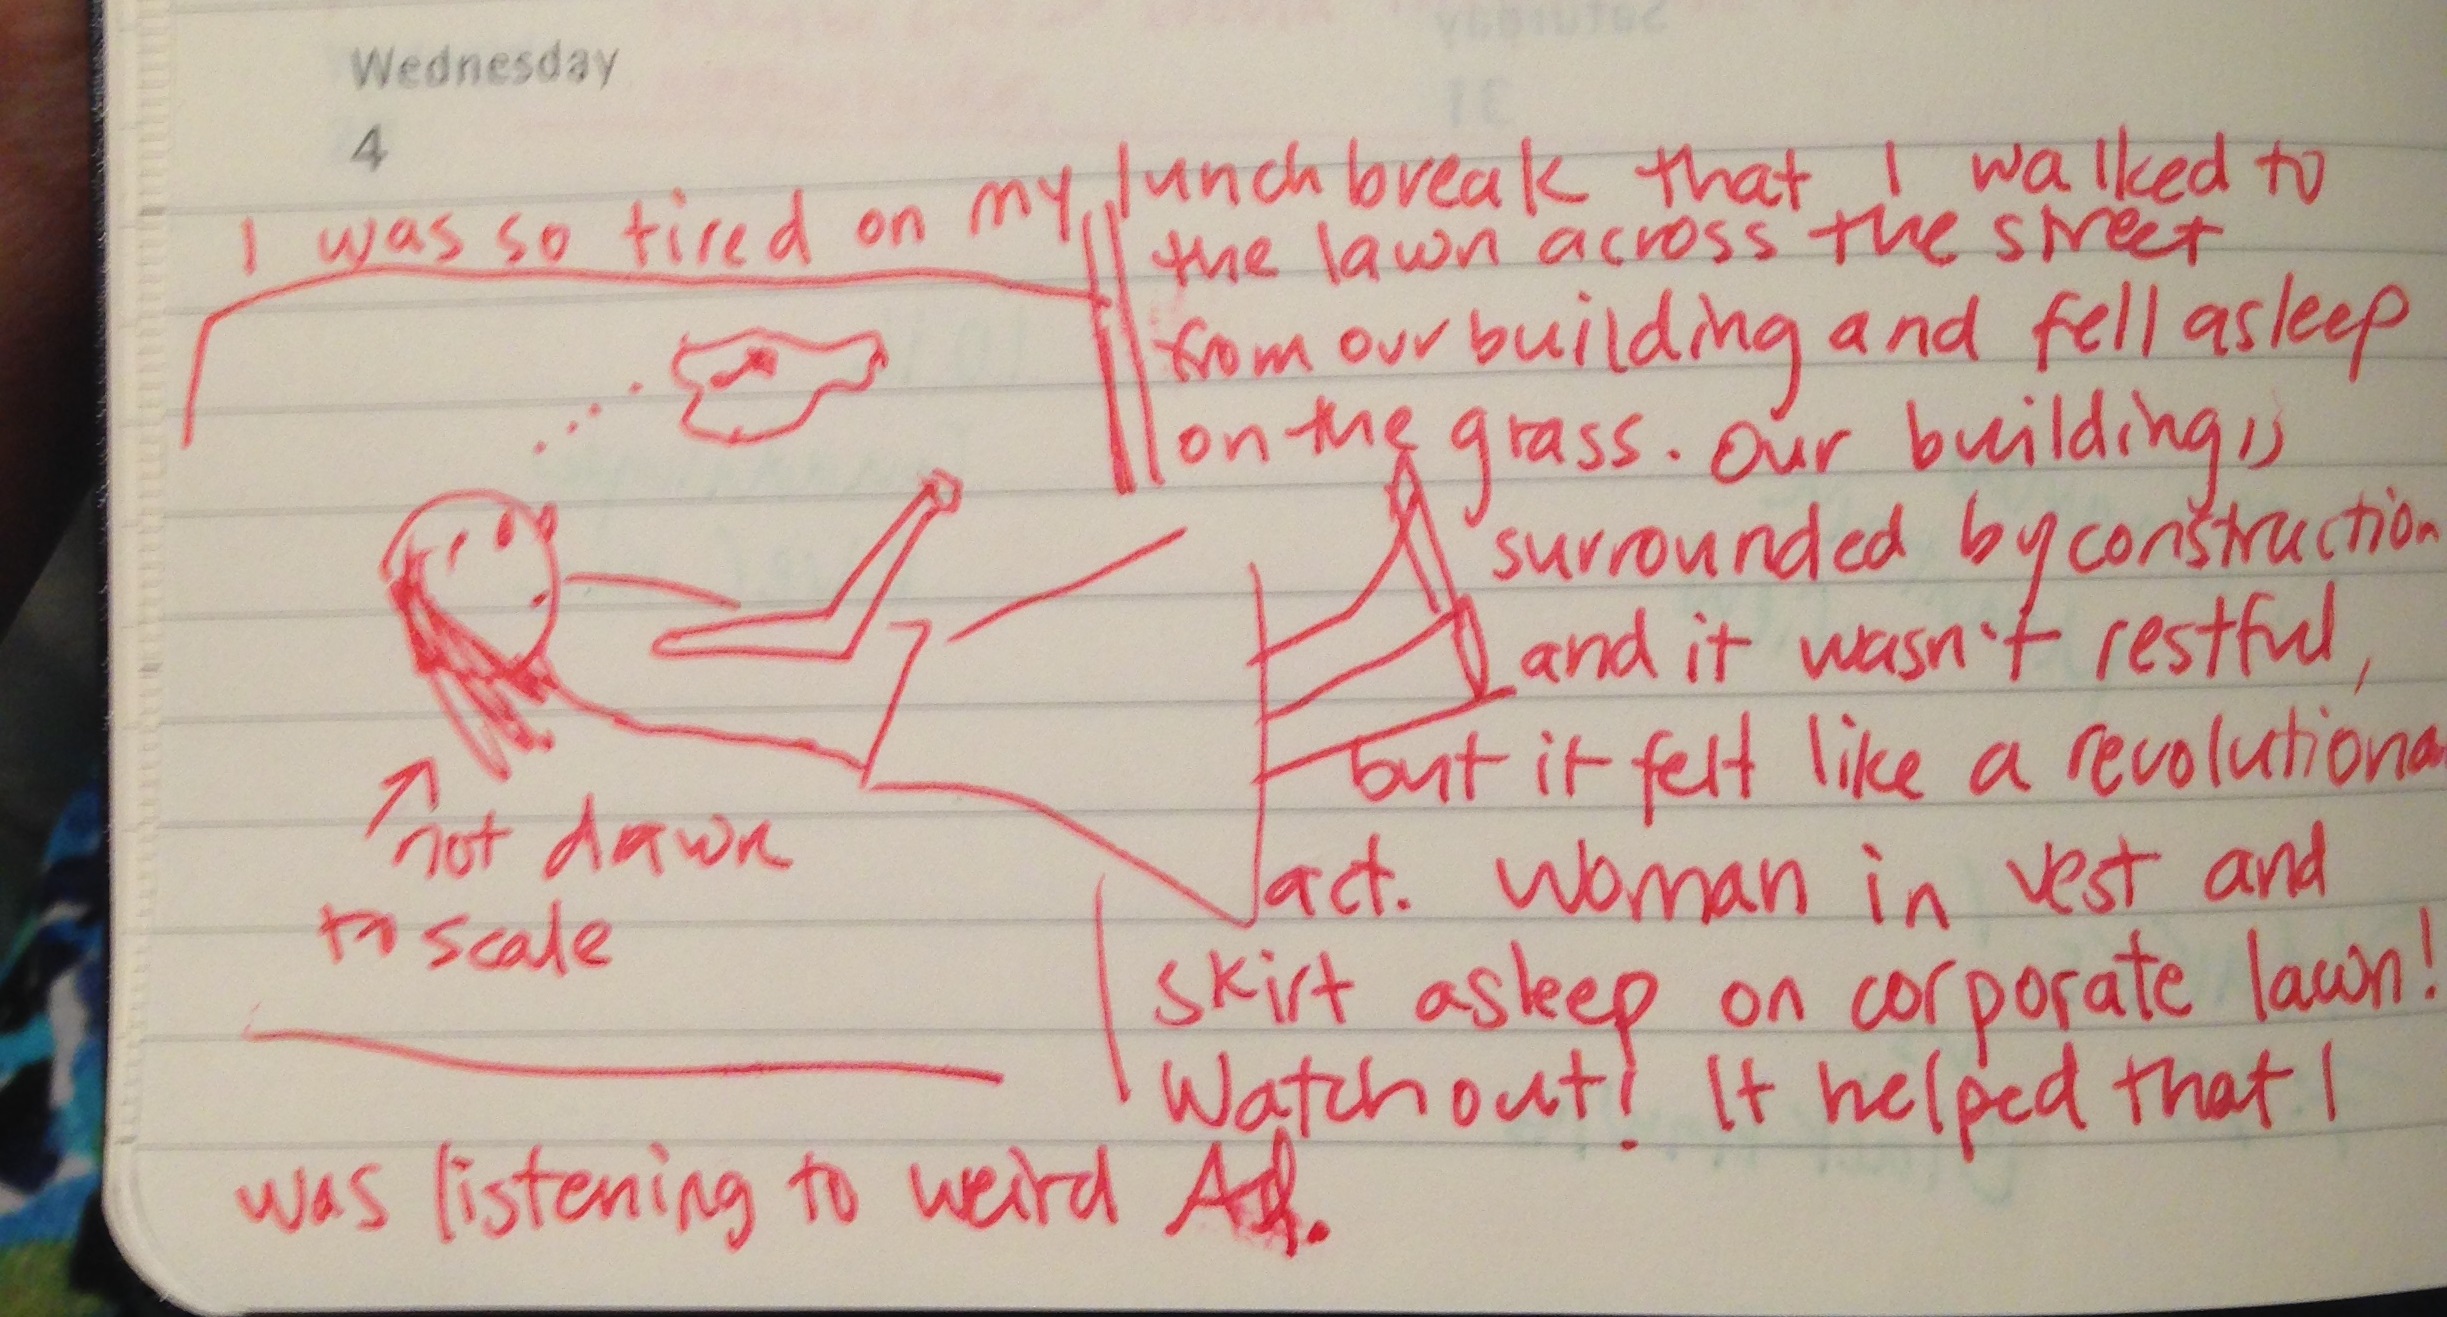 Wednesday
4
I was so tired on my lunch break that I walked to
the lawn across the street
from our building and fell asleep
on the grass. Our building is
surrounded by construction
and it wasn't restful,
but it felt like a revolutiona
act. Woman in vest and
skirt asleep on corporate lawn!
Watch out! It helped that I
was listening to weird Al.
not drawn
to scale